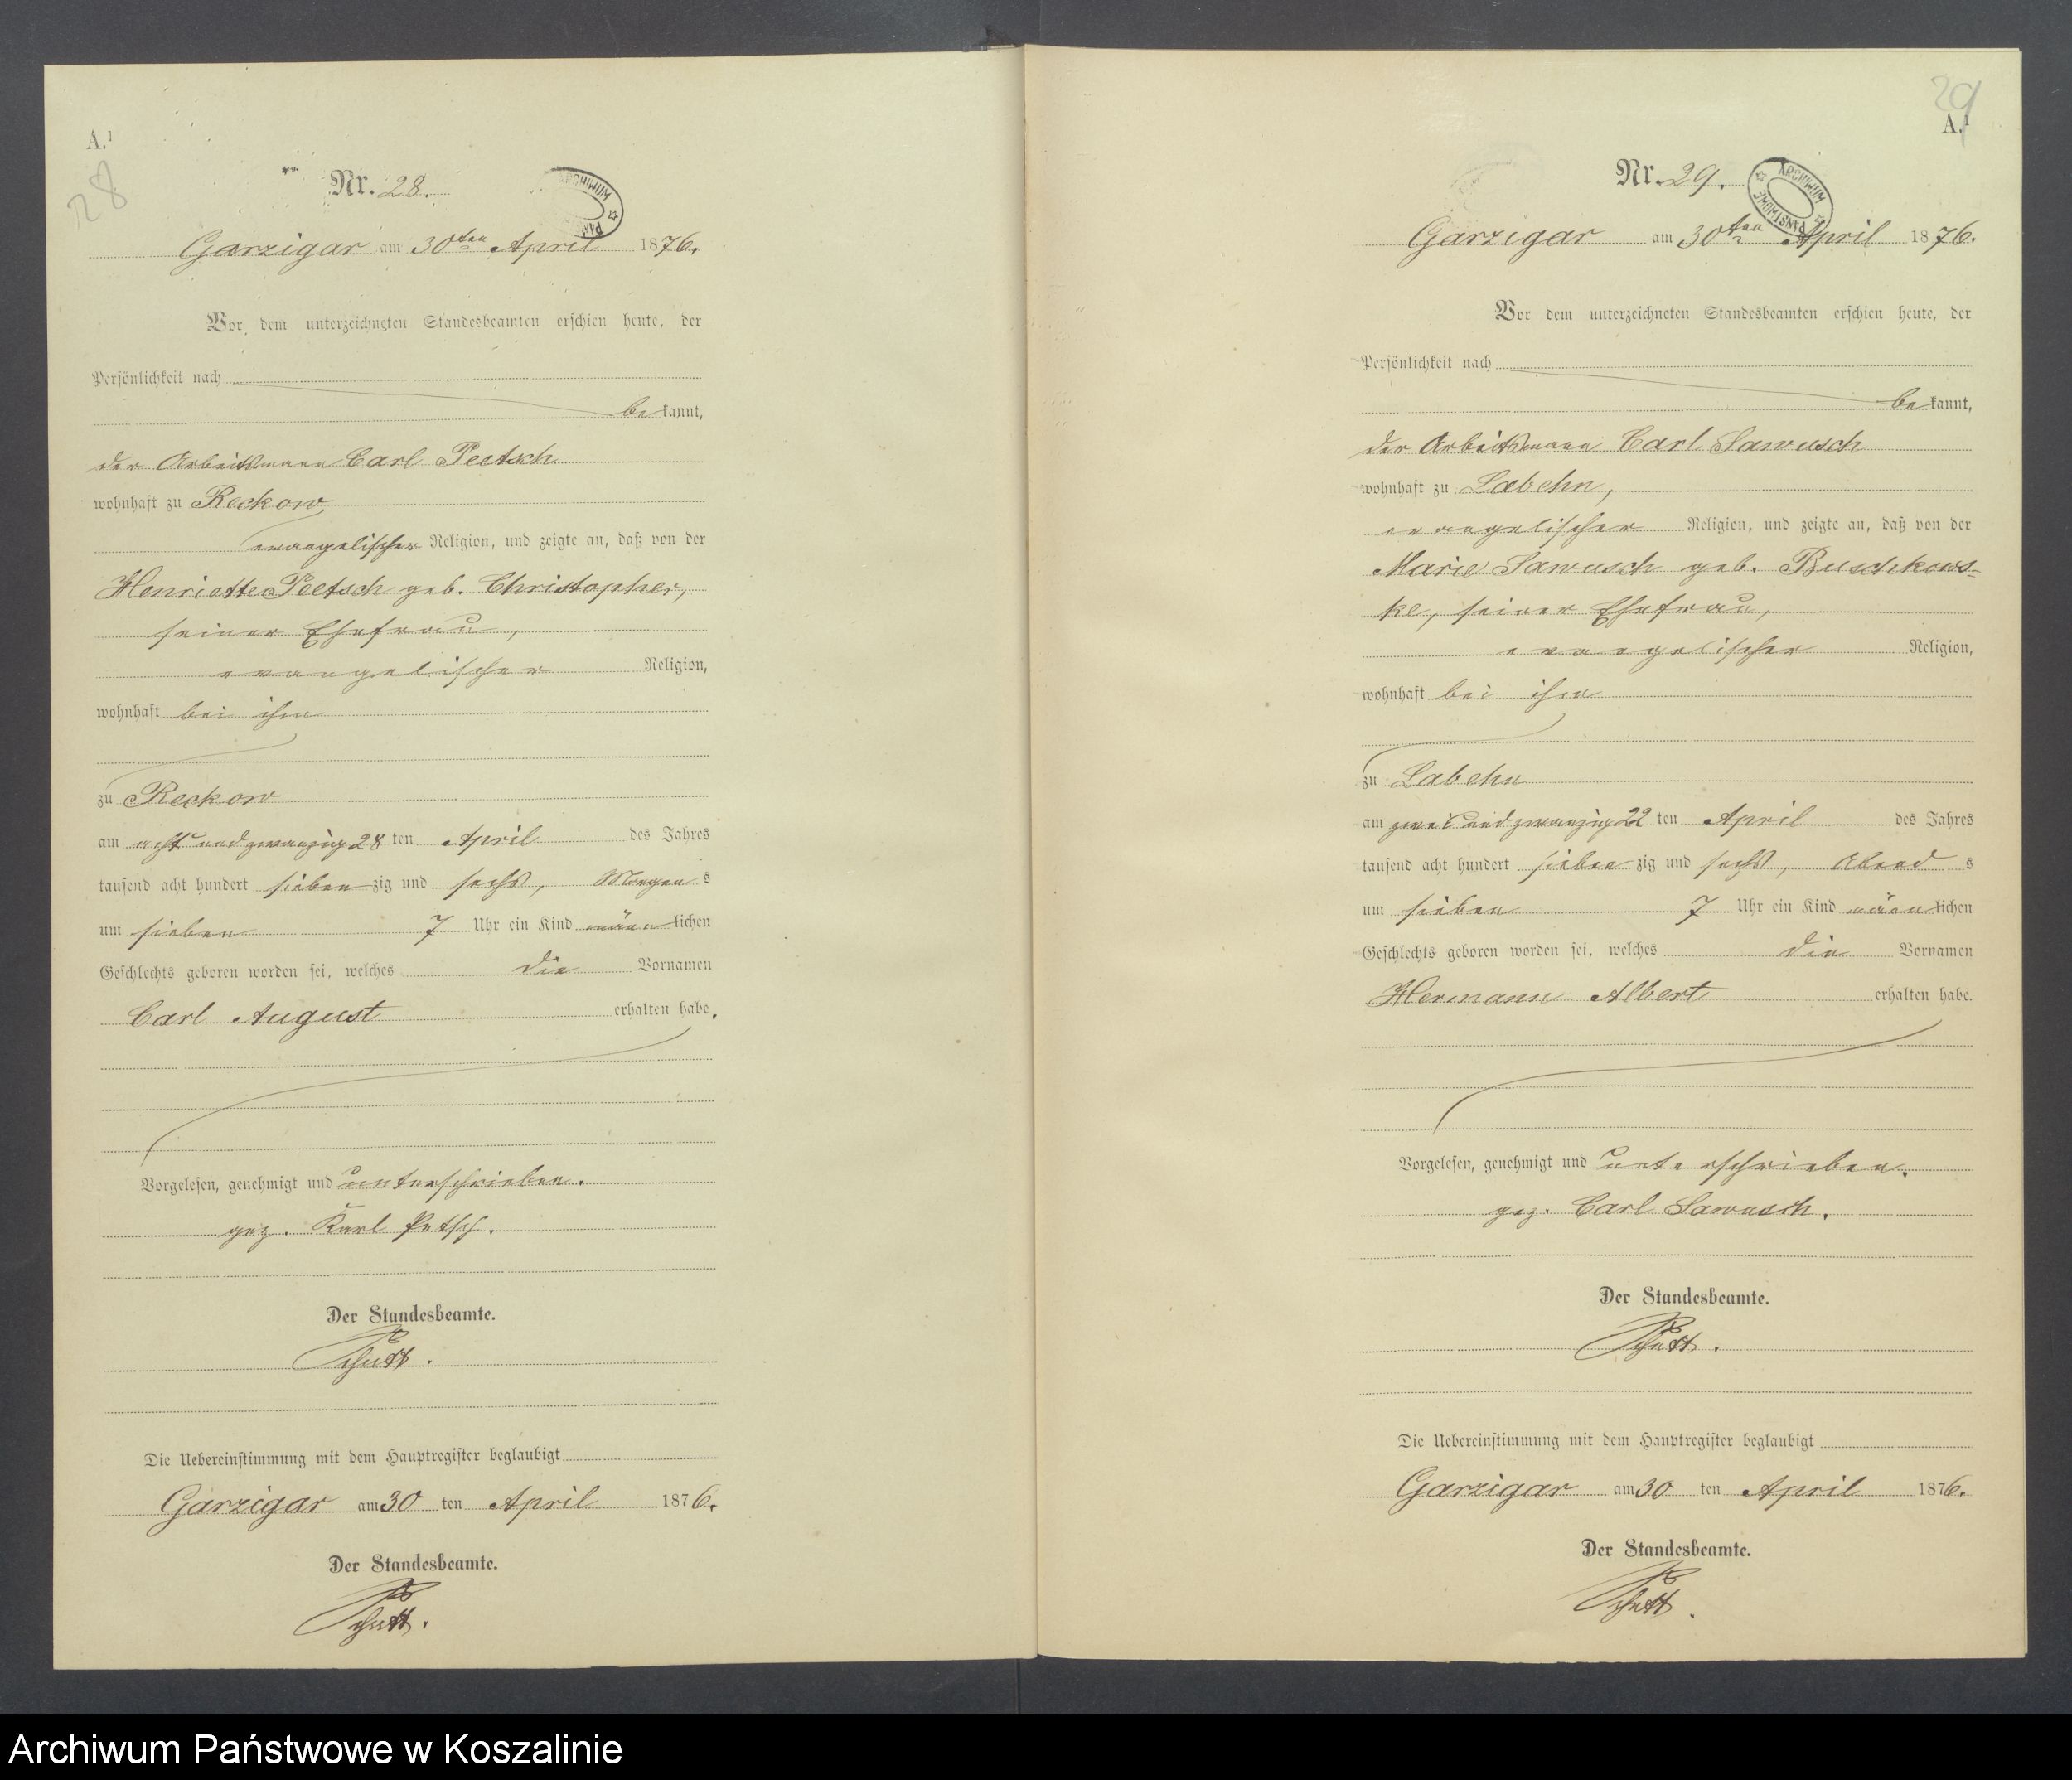 A.¹
28
Nr. 28.
ARCHIWUM
Garzigar am 30ten April 1876.
Vor dem unterzeichneten Standesbeamten erschien heute, der
Persönlichkeit nach
bekannt,
der Arbeitsmann Carl Peetsch
wohnhaft zu Reckow
evangelischer Religion, und zeigte an, daß von der
Henriette Peetsch geb. Christopher,
seiner Ehefrau,
evangelischer Religion,
wohnhaft bei ihm
zu Reckow
am acht und zwanzig 28 ten April des Jahres
tausend acht hundert sieben zig und sechs, Morgens
um sieben 7 Uhr ein Kind männlichen
Geschlechts geboren worden sei, welches die Vornamen
Carl August erhalten habe.
Vorgelesen, genehmigt und unterschrieben.
gez. Karl Petsch.
Der Standesbeamte.
Schutt.
Die Uebereinstimmung mit dem Hauptregister beglaubigt
Garzigar am 30 ten April 1876.
Der Standesbeamte.
Schutt.
29
A.¹
Nr. 29.
ARCHIWUM PAŃSTWOWE
Garzigar am 30ten April 1876.
Vor dem unterzeichneten Standesbeamten erschien heute, der
Persönlichkeit nach
bekannt,
der Arbeitsmann Carl Sawusch
wohnhaft zu Labehn,
evangelischer Religion, und zeigte an, daß von der
Marie Sawusch geb. Buschkows-
ke, seiner Ehefrau,
evangelischer Religion,
wohnhaft bei ihm
zu Labehn
am zwei und zwanzig 22 ten April des Jahres
tausend acht hundert sieben zig und sechs, Abends
um sieben 7 Uhr ein Kind männlichen
Geschlechts geboren worden sei, welches die Vornamen
Hermann Albert erhalten habe.
Vorgelesen, genehmigt und unterschrieben.
gez. Carl Sawusch.
Der Standesbeamte.
Schutt.
Die Uebereinstimmung mit dem Hauptregister beglaubigt
Garzigar am 30 ten April 1876.
Der Standesbeamte.
Schutt.
Archiwum Państwowe w Koszalinie